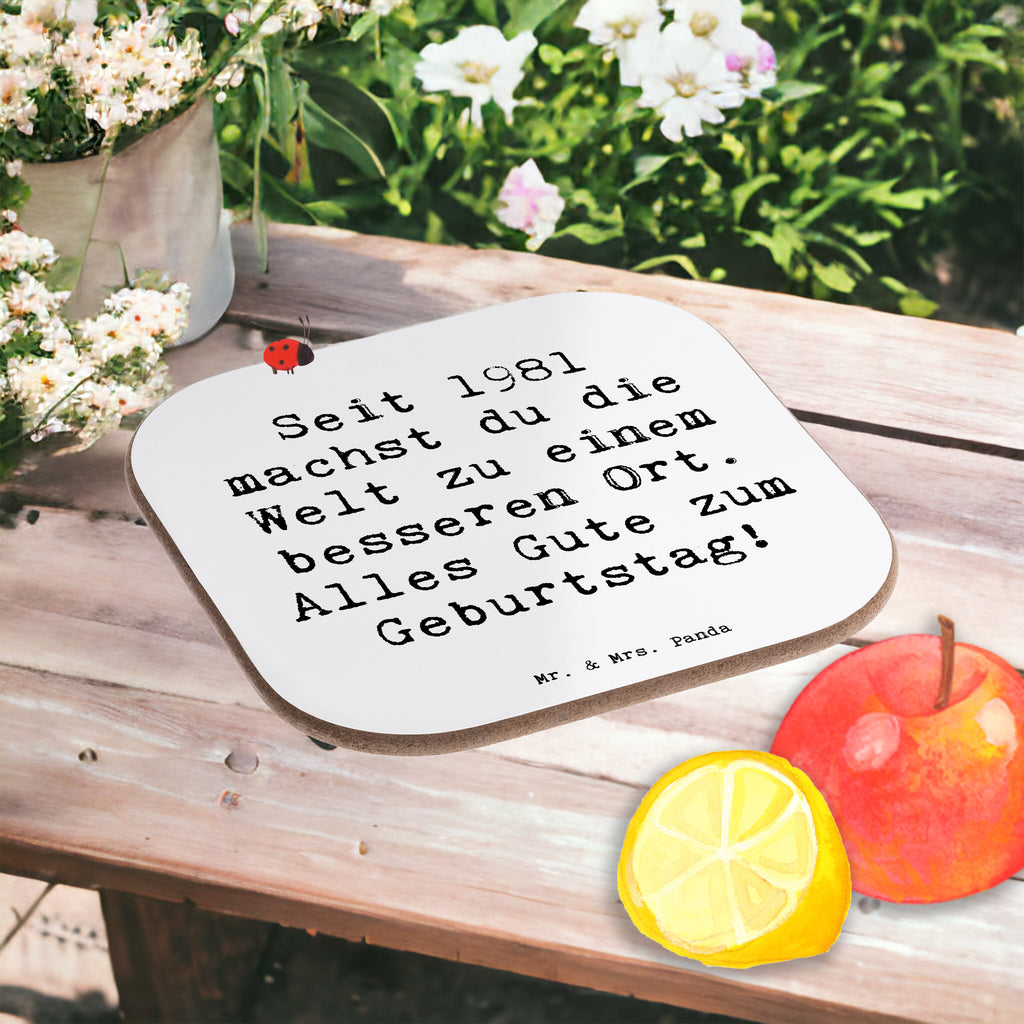 Seit 1981
machst du die
Welt zu einem
besseren Ort.
Alles Gute zum
Geburtstag!
Mr. & Mrs. Panda